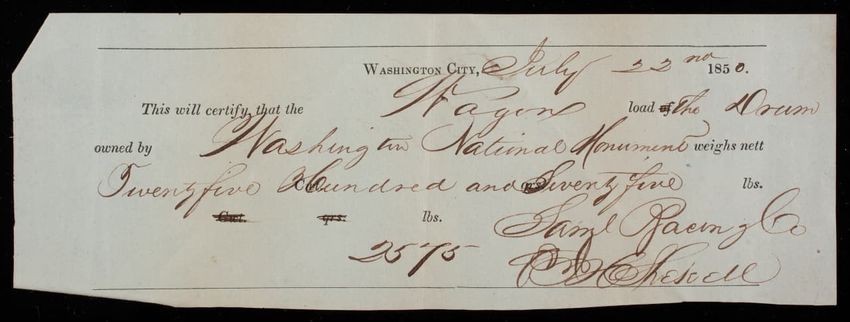 Washington City, July 22nd 1850.
This will certify, that the Wagon load of The Drum
owned by Washington National Monument weighs nett
Twentyfive Hundred and Seventyfive lbs.
Cwt. qrs. lbs.
2575 Saml Bacon & Co